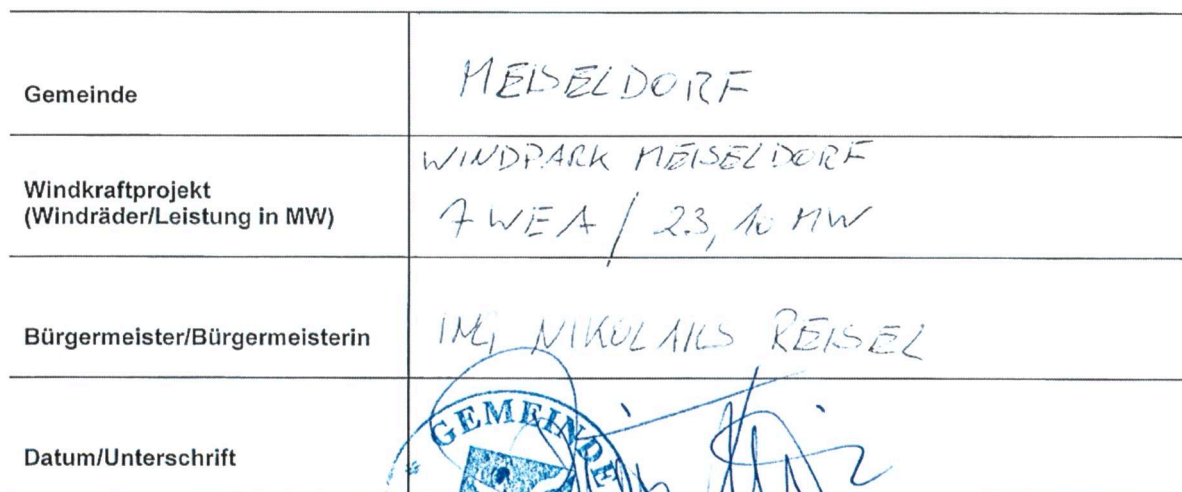 Gemeinde
MEISELDORF
Windkraftprojekt
(Windräder/Leistung in MW)
WINDPARK MEISELDORF
7 WEA / 23,10 MW
Bürgermeister/Bürgermeisterin
ING NIKOLAUS REISEL
Datum/Unterschrift
GEMEINDE